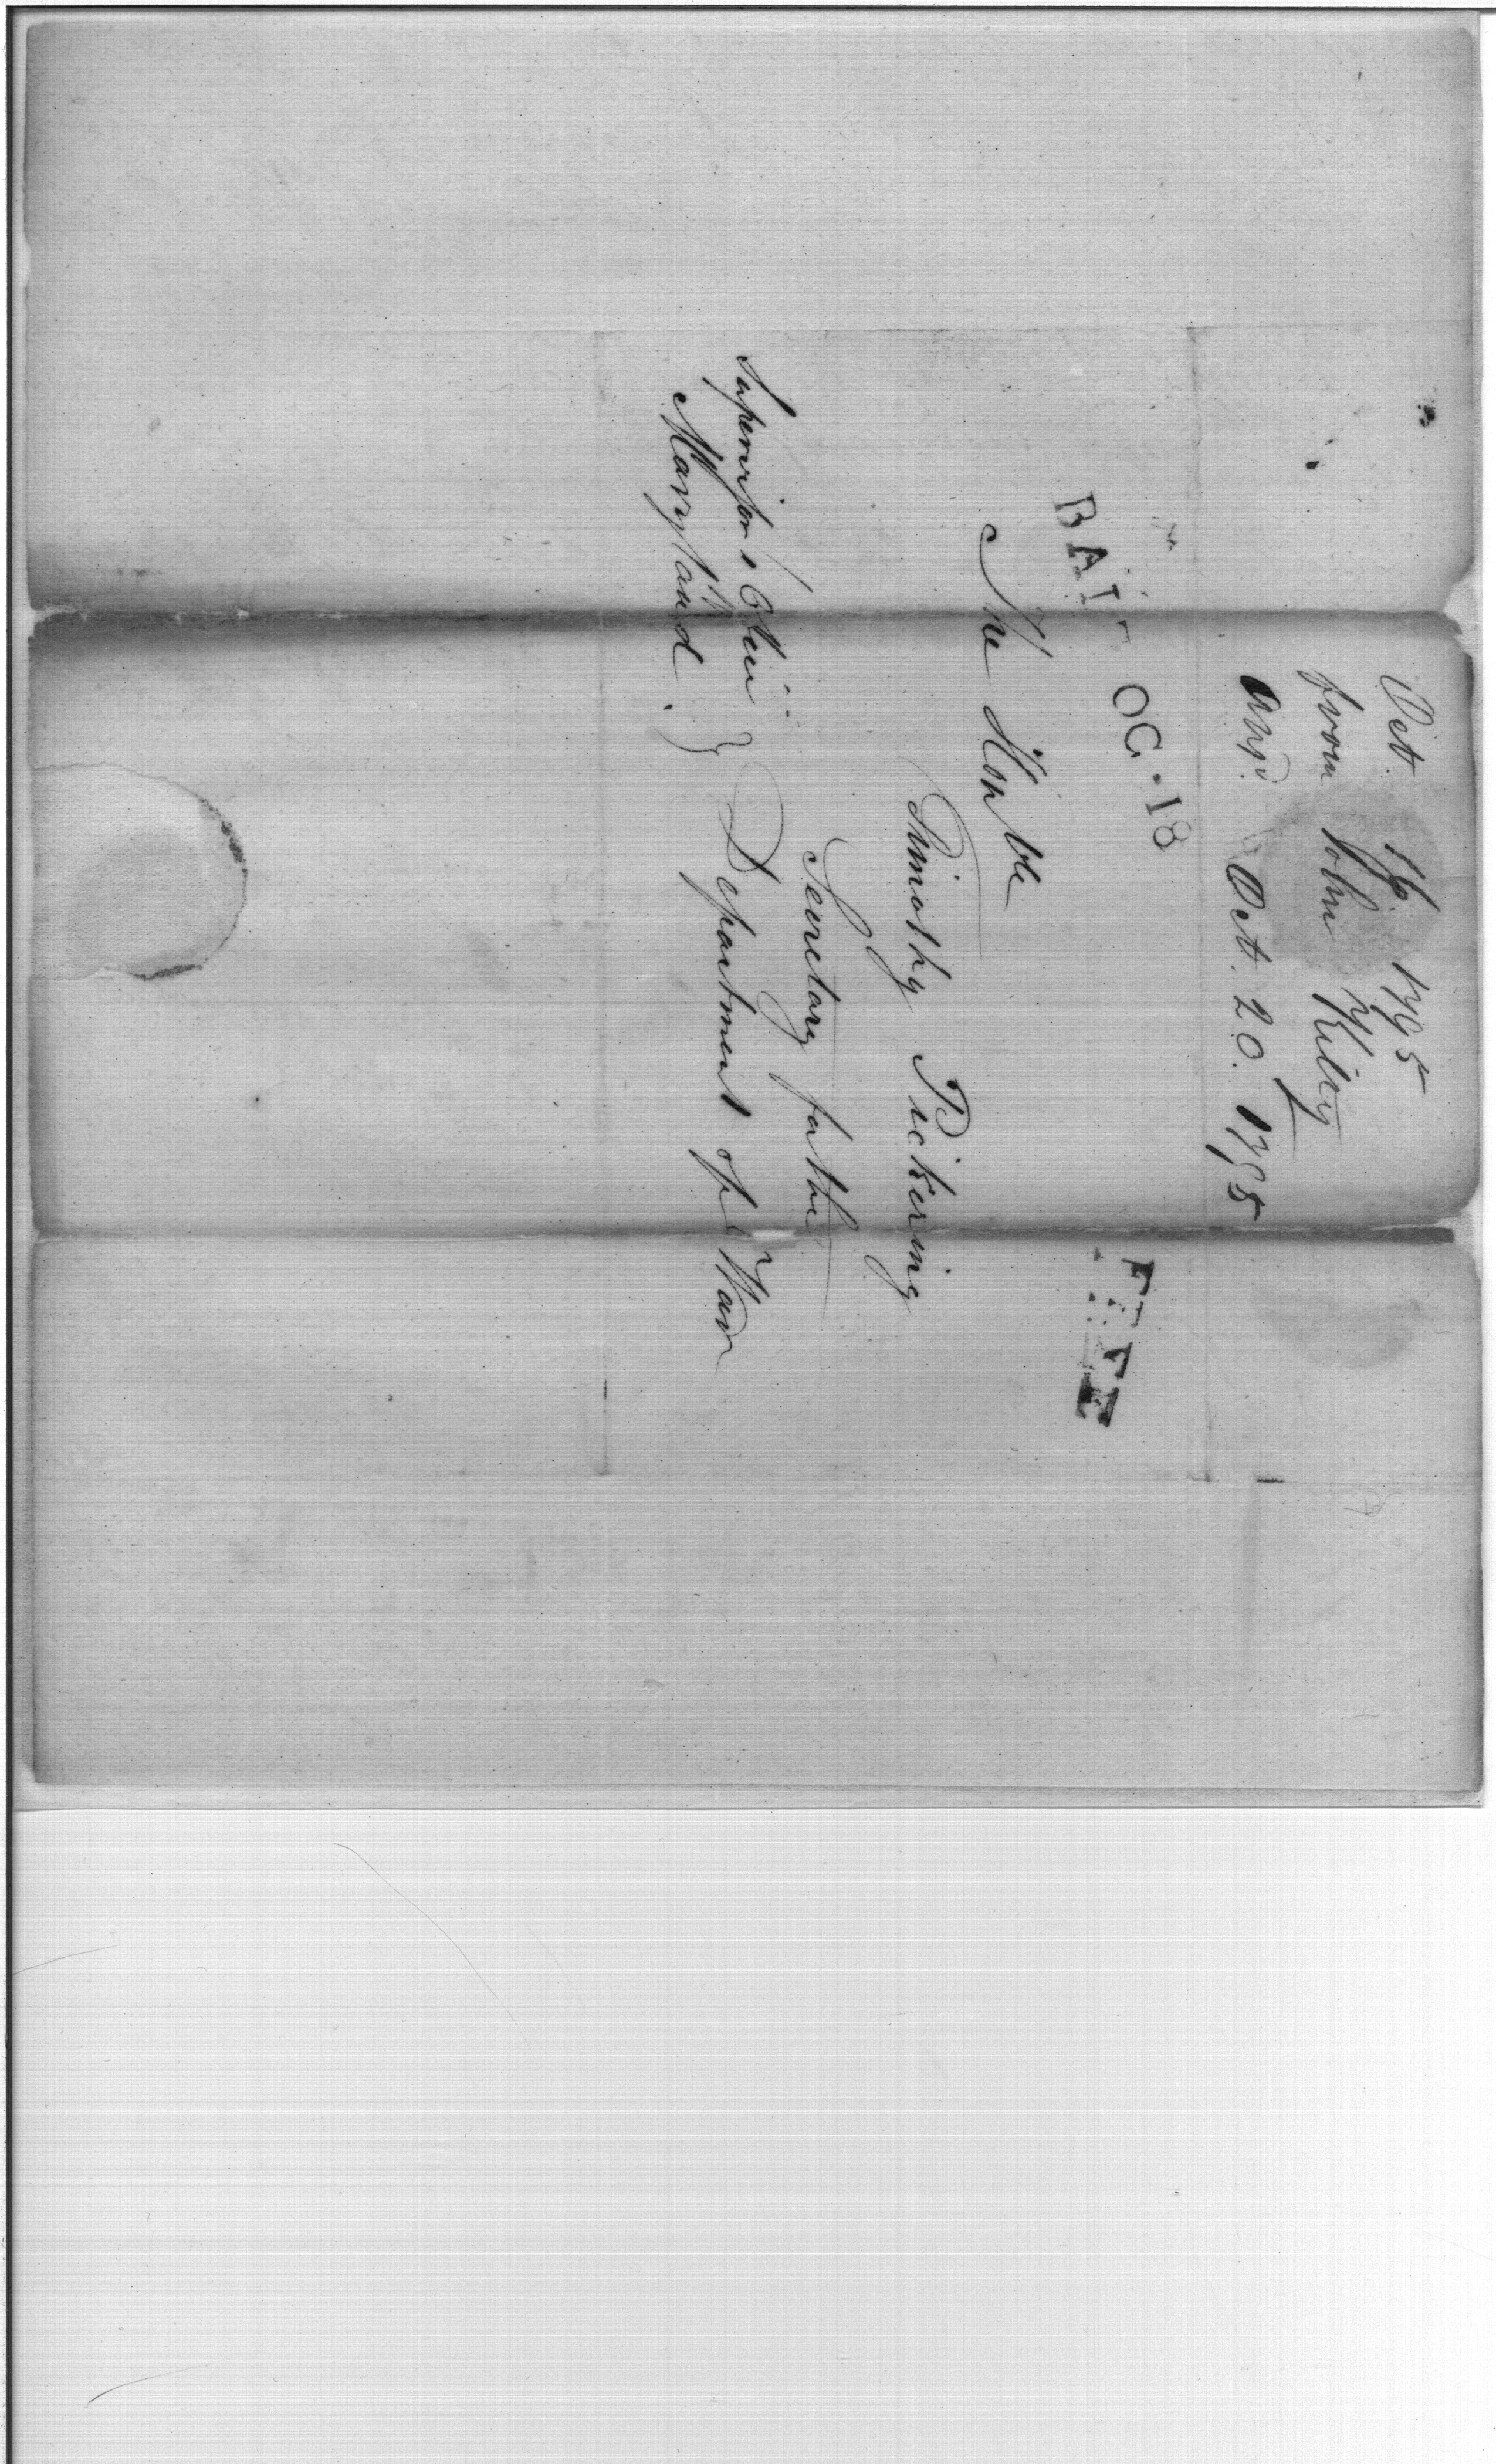 Oct. 16 1795
from John Kilty
Ansd. Oct. 20. 1795
BALT OC. 18
FREE
The Honble
Timothy Pickering
Secretary for the
Department of War
Supervisors Office
Maryland. }